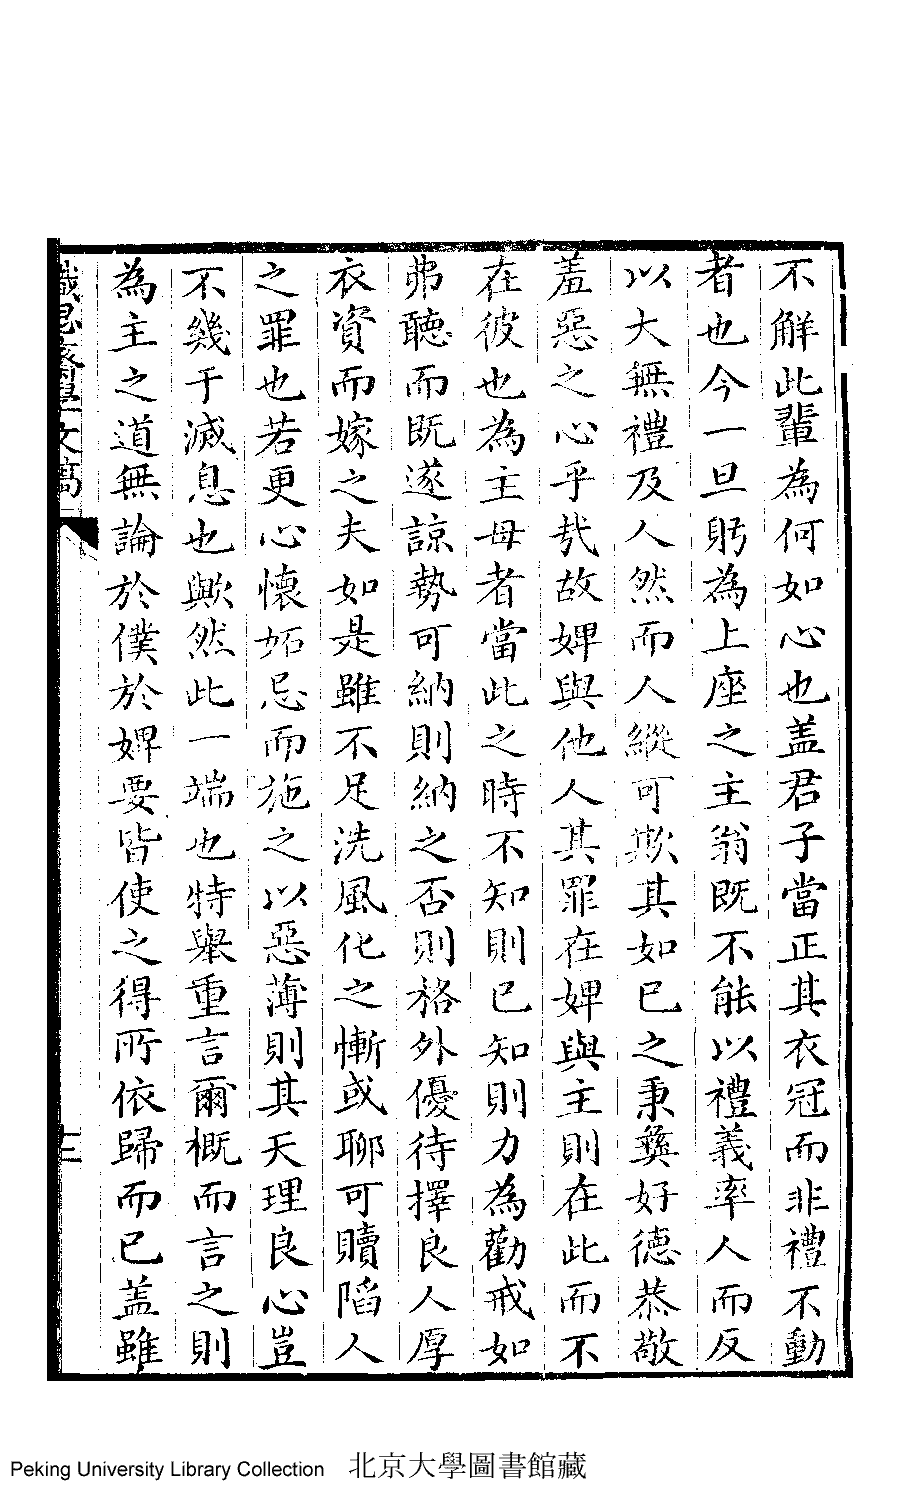 不解此輩為何如心也盖君子當正其衣冠而非禮不動
者也今一旦躬為上座之主翁既不能以禮義率人而反
以大無禮及人然而人縱可欺其如已之秉彝好德恭敬
羞惡之心乎㢤故婢與他人其罪在婢與主則在此而不
在彼也為主母者當此之時不知則已知則力為勸戒如
弗聽而既遂諒勢可納則納之否則格外優待擇良人厚
衣資而嫁之夫如是雖不足洗風化之慚或聊可贖陷人
之罪也若更心懷妬忌而施之以惡薄則其天理良心豈
不幾于滅息也歟然此一端也特舉重言爾概而言之則
為主之道無論於僕於婢要皆使之得所依歸而已盖雖
Peking University Library Collection 北京大學圖書館藏